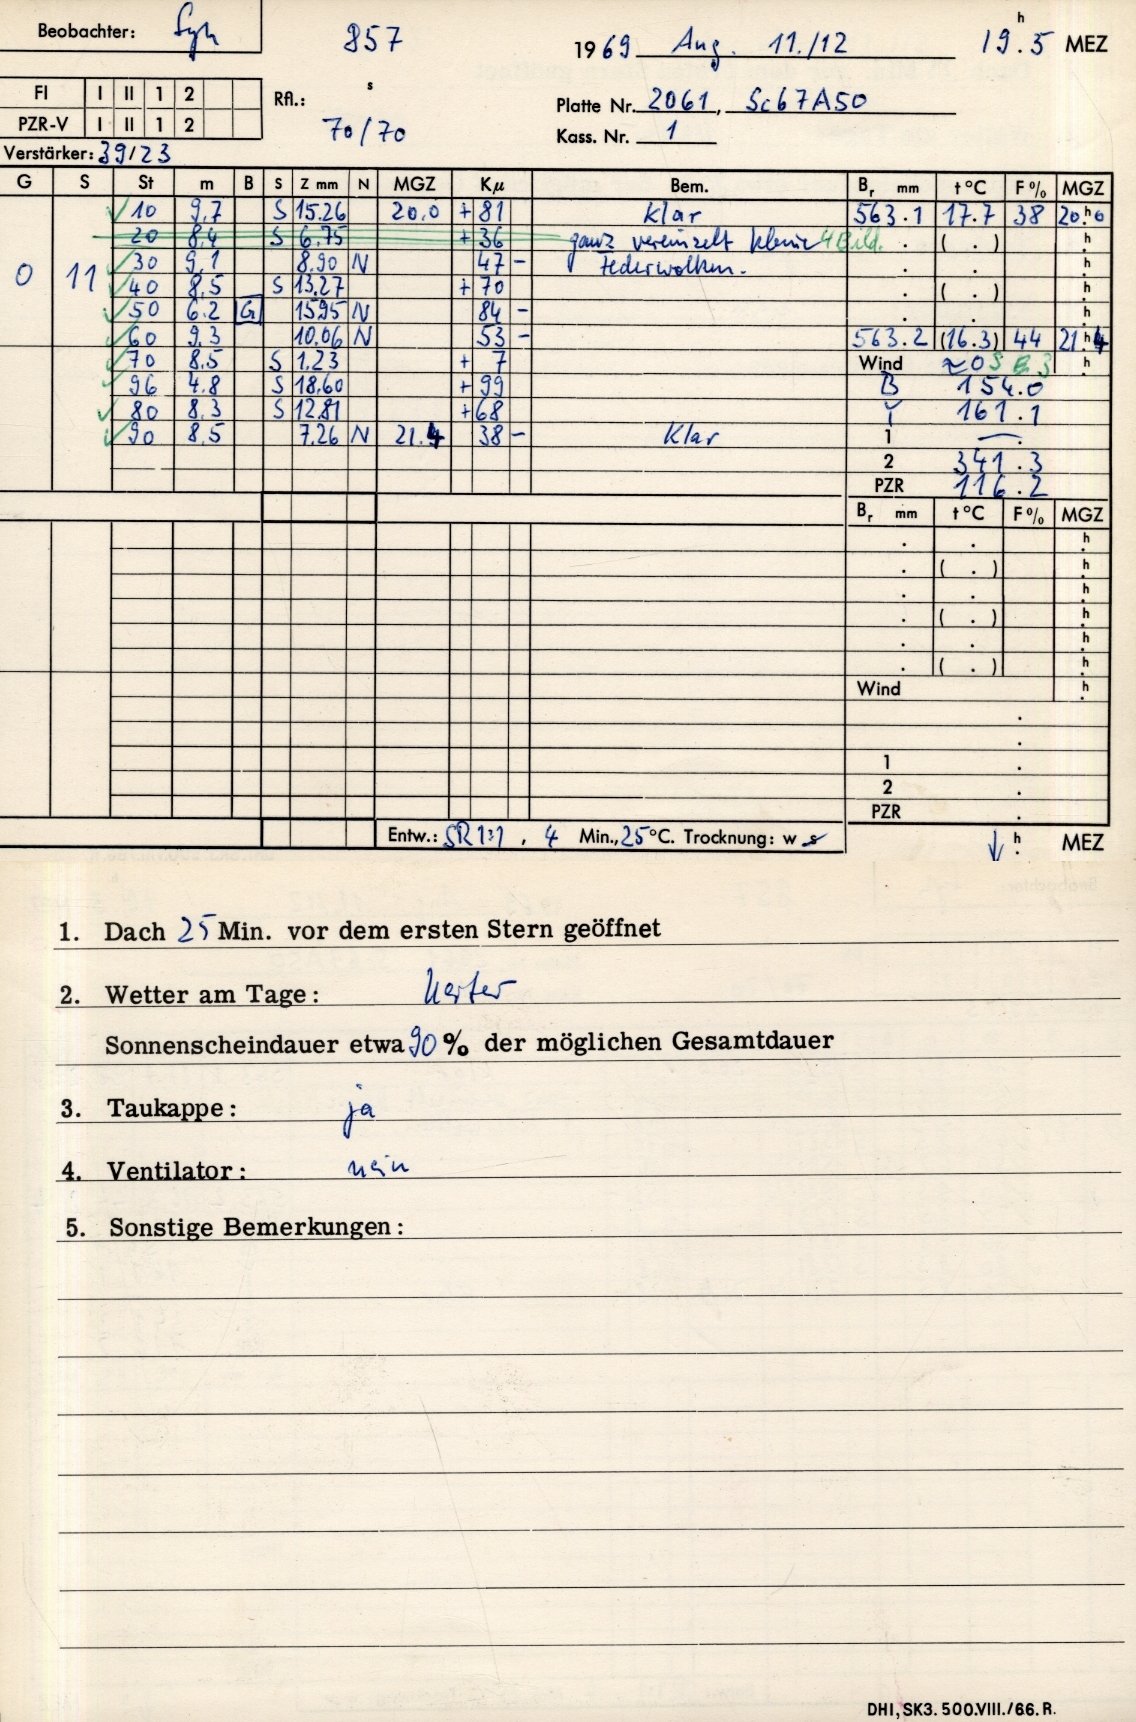 Beobachter: 857 1969 Aug. 11./12 19h.5 MEZ
FI I II 1 2 Rfl.: s Platte Nr. 2061, Sc67A50
PZR-V I II 1 2 70/70 Kass. Nr. 1
Verstärker: 39/23
G S St m B S Z mm N MGZ Kμ Bem. Br mm t°C F% MGZ
10 9.7 S 15.26 20.0 + 81 Klar 563.1 17.7 38 20.h0
20 8.4 S 6.75 + 36 ganz vereinzelt kleine 4 Bild. . ( . ) h
0 11 30 9.1 8.90 N 47 - Federwolken. . . h
40 8.5 S 13.27 + 70 . ( . ) h
50 6.2 G 15.95 N 84 - . . h
60 9.3 10.06 N 53 - 563.2 (16.3) 44 21.h4
70 8.5 S 1.23 + 7 Wind ≈0 h
96 4.8 S 18.60 + 99 B 154.0
80 8.3 S 12.81 + 68 Y 161.1
90 8.5 7.26 N 21.4 38 - Klar 1 — .
2 341.3
PZR 116.2
Br mm t°C F% MGZ
. . h
. ( . ) h
. . h
. ( . ) h
. . h
. ( . ) h
Wind h
.
.
1 .
2 .
PZR .
Entw.: SR 1:1, 4 Min., 25°C. Trocknung: w s ↓ h. MEZ
1. Dach 25 Min. vor dem ersten Stern geöffnet
2. Wetter am Tage: heiter
Sonnenscheindauer etwa 90 % der möglichen Gesamtdauer
3. Taukappe: ja
4. Ventilator: nein
5. Sonstige Bemerkungen:
DHI, SK3. 500.VIII./66. R.